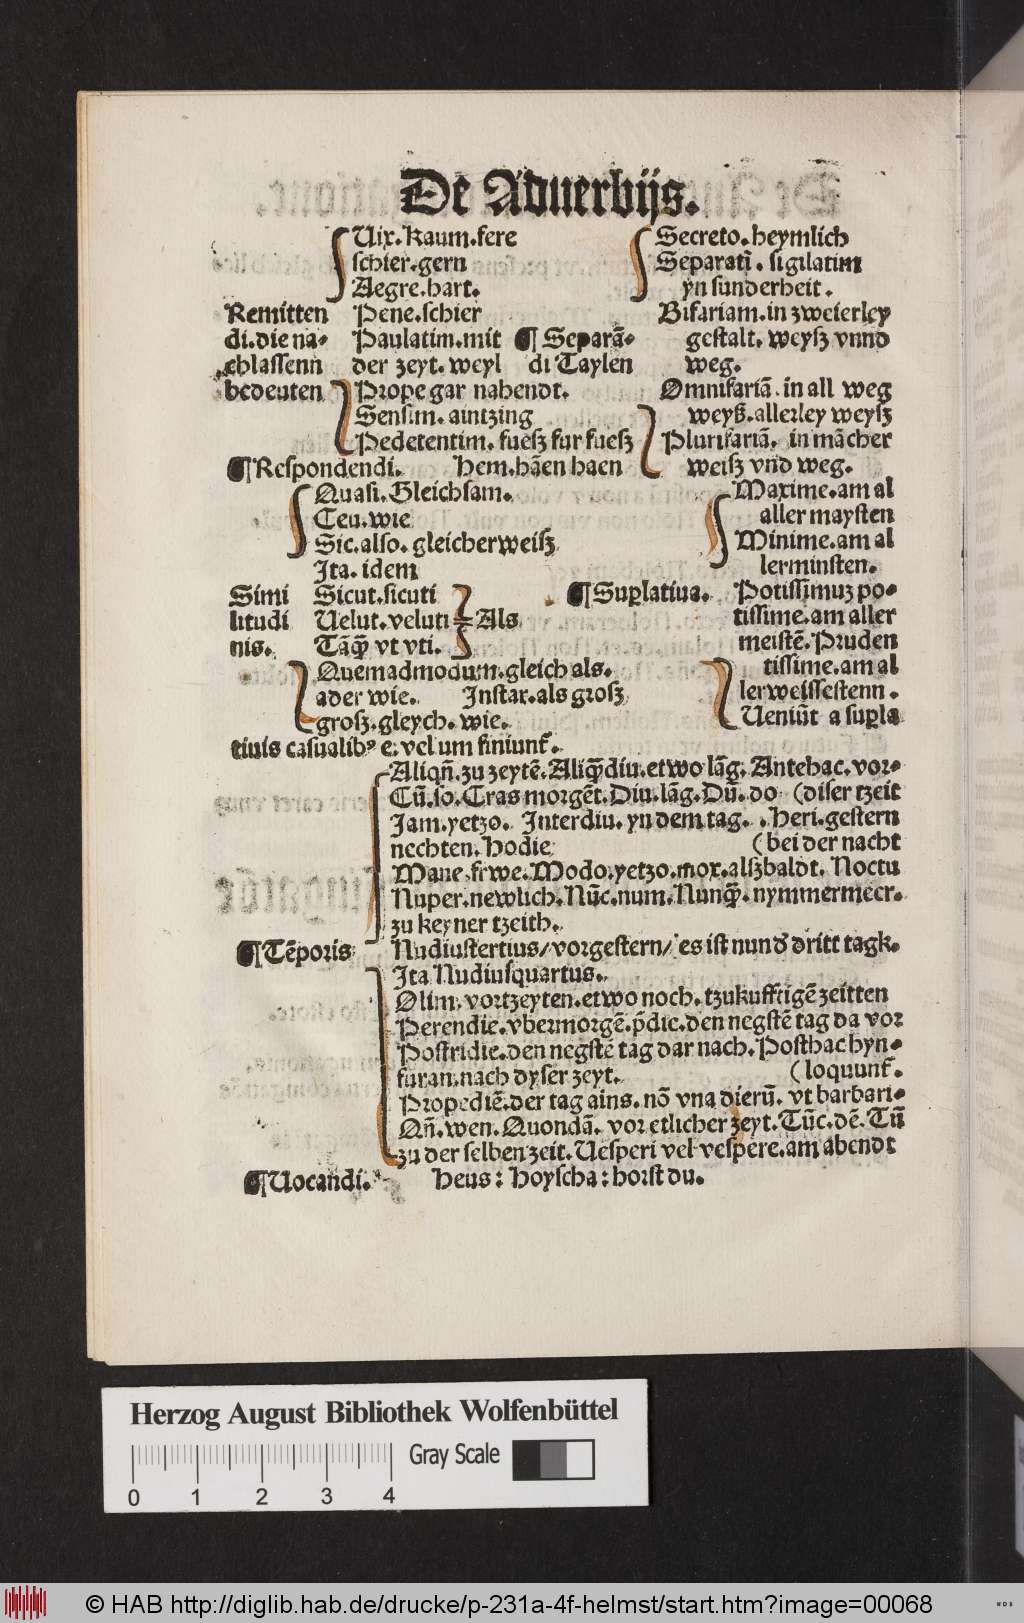 De Aduerbijs.
Uix. kaum. fere
schier. gern
Aegre. hart.
Remitten
di. die na-
chlassenn
bedeuten
Pene. schier
Paulatim. mit
der zeyt. weyl
Prope gar nahendt.
Sensim. aintzing
Pedetentim. fuesz fur fuesz
¶ Separā-
di Taylen
Secreto. heymlich
Separatī. sigilatim
yn sunderheit.
Bifariam. in zweierley
gestalt. weysz vnnd
weg.
Omnifariā. in all weg
weysz. allerley weysz
Plurifariā. in mācher
weisz vnd weg.
¶ Respondendi. Hem. hāen haen
Simi
litudi
nis.
Quasi. Gleichsam.
Ceu. wie
Sic. also. gleicherweisz
Ita. idem
Sicut. sicuti
Uelut. veluti Als
Tāꝙ̄ vt vti.
Quemadmodum. gleich als.
ader wie. Instar. als grosz
grosz. gleych. wie.
¶ Suꝑlatiua.
Maxime. am al
aller maysten
Minime. am al
lerminsten.
Potissimuꝫ po-
tissime. am aller
meistē. Pruden
tissime. am al
lerweissestenn.
Ueniūt a suꝑla
tiuis casualibꝰ e. vel um finiunt̄.
¶ Tēporis
Aliqn̄. zu zeytē. Aliꝙ̄diu. etwo lāg. Antehac. vor-
Cū. so. Cras morgēt. Diu. lāg. Dū. do (diser tzeit
Jam. yetzo. Interdiu. yn dem tag. . Heri. gestern
nechten. Hodie (bei der nacht
Mane. frwe. Modo. yetzo. mox. alszbaldt. Noctu
Nuper. newlich. Nūc. num. Nunꝙ̄. nymmermeer.
zu keyner tzeith.
Nudiustertius/ vorgestern/ es ist nund dritt tagk.
Ita Nudiusquartus.
Olim. vortzeyten. etwo noch. tzukufftigē zeitten
Perendie. vbermorgē. p̄die. den negstē tag da vor
Postridie. den negstē tag dar nach. Posthac hyn-
furan. nach dyser zeyt. (loquunt̄.
Propediē. der tag ains. nō vna dierū. vt barbari-
Qn̄. wen. Quondā. vor etlicher zeyt. Tūc. dē. Tū
zu der selben zeit. Uesperi vel vespere. am abendt
¶ Uocandi. Heus : Hoyscha : horst du.
Herzog August Bibliothek Wolfenbüttel
Gray Scale
0 1 2 3 4
© HAB http://diglib.hab.de/drucke/p-231a-4f-helmst/start.htm?image=00068